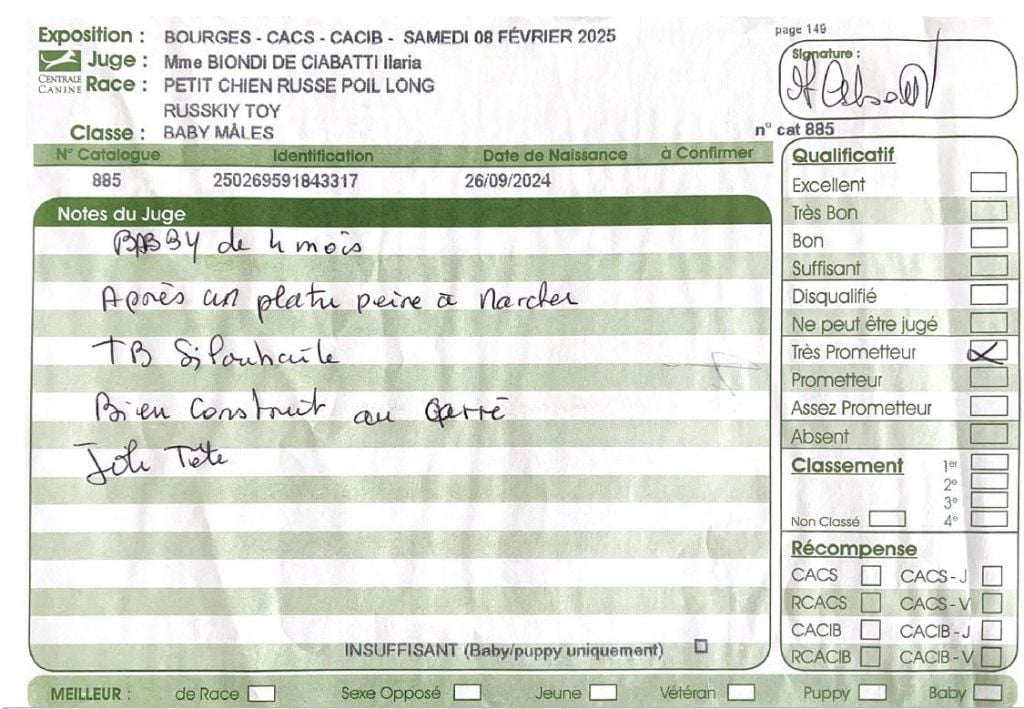 Exposition : BOURGES - CACS - CACIB - SAMEDI 08 FÉVRIER 2025
page 149
Juge : Mme BIONDI DE CIABATTI Ilaria
Signature :
CENTRALE CANINE
Race : PETIT CHIEN RUSSE POIL LONG
RUSSKIY TOY
Classe : BABY MÂLES
n° cat 885
N° Catalogue Identification Date de Naissance à Confirmer
885 250269591843317 26/09/2024
Notes du Juge
BABBY de 4 mois
Après un peine à Marcher
TB Silouhaite
Bien Construit au Carré
Joli Tête
INSUFFISANT (Baby/puppy uniquement)
Qualificatif
Excellent
Très Bon
Bon
Suffisant
Disqualifié
Ne peut être jugé
Très Prometteur X
Prometteur
Assez Prometteur
Absent
Classement 1er
2e
3e
Non Classé 4e
Récompense
CACS CACS - J
RCACS CACS - V
CACIB CACIB - J
RCACIB CACIB - V
MEILLEUR : de Race Sexe Opposé Jeune Vétéran Puppy Baby